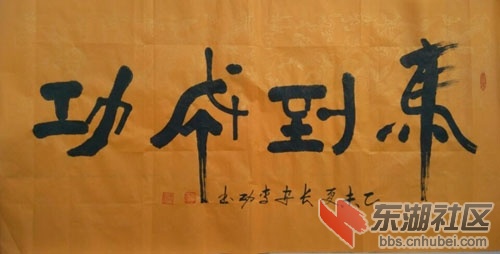 馬到成功
乙未夏长安李功书
东湖社区
bbs.cnhubei.com